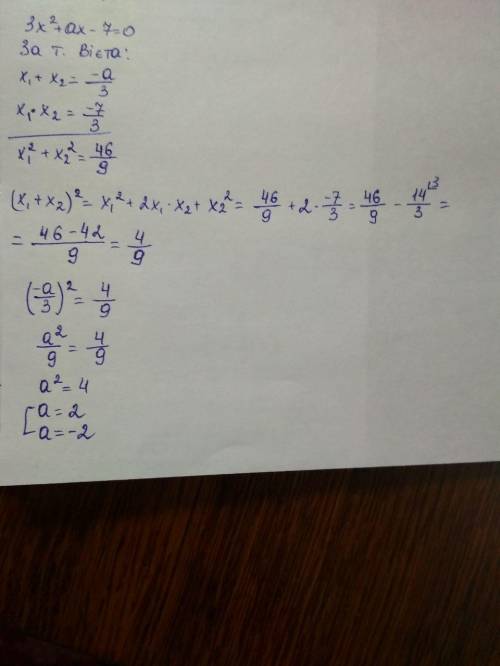 3x²+ax-7=0
За т. Вієта:
x₁+x₂=-a/3
x₁·x₂=-7/3
x₁²+x₂²=46/9
(x₁+x₂)²=x₁²+2x₁·x₂+x₂²=46/9+2·-7/3=46/9-14⌊³/3=
=46-42/9=4/9
(-a/3)²=4/9
a²/9=4/9
a²=4
[a=2
a=-2